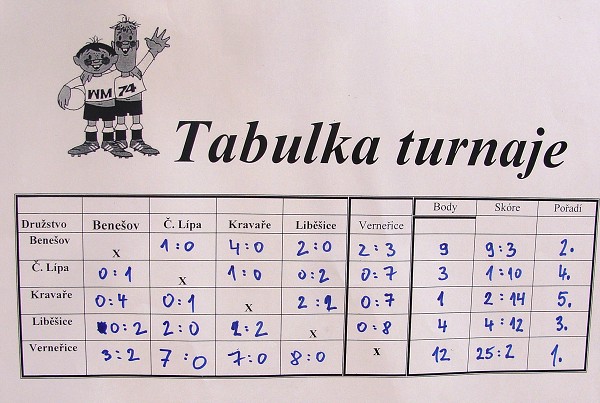 WM 74
Tabulka turnaje
Družstvo Benešov Č. Lípa Kravaře Liběšice Verneřice Body Skóre Pořadí
Benešov x 1:0 4:0 2:0 2:3 9 9:3 2.
Č. Lípa 0:1 x 1:0 0:2 0:7 3 1:10 4.
Kravaře 0:4 0:1 x 2:2 0:7 1 2:14 5.
Liběšice 0:2 2:0 2:2 x 0:8 4 4:12 3.
Verneřice 3:2 7:0 7:0 8:0 x 12 25:2 1.